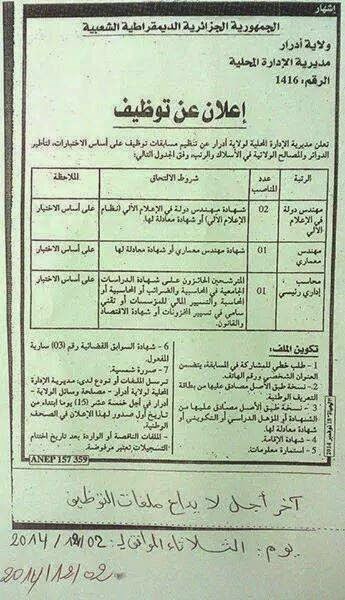 إشهار
الجمهورية الجزائرية الديمقراطية الشعبية
ولاية أدرار
مديرية الإدارة المحلية
الرقم: 1416
إعلان عن توظيف
تعلن مديرية الإدارة المحلية لولاية أدرار عن تنظيم مسابقات توظيف على أساس الاختبارات، لتأطير
الدوائر والمصالح الولائية في الأسلاك والرتب، وفق الجدول التالي:
الرتبة
عدد المناصب
شروط الالتحاق
الملاحظة
مهندس دولة
في الإعلام
الآلي
02
شهادة مهندس دولة في الإعلام الآلي (نظام
الإعلام الآلي) أو شهادة معادلة لها.
على أساس الاختبار
مهندس
معماري
01
شهادة مهندس معماري أو شهادة معادلة لها
على أساس الاختبار
محاسب
إداري رئيسي
01
المترشحين الحائزون على شهادة الدراسات
الجامعية في المحاسبة والضرائب أو المحاسبة أو
المحاسبة والتسيير المالي للمؤسسات أو تقني
سامي في تسيير المخزونات أو شهادة الاقتصاد
والقانون.
على أساس الاختبار
تكوين الملف:
1 - طلب خطي للمشاركة في المسابقة، يتضمن
العنوان الشخصي ورقم الهاتف.
2 - نسخة طبق الأصل مصادق عليها من بطاقة
التعريف الوطنية.
3 - نسخة طبق الأصل مصادق عليها من
الشهادة أو المؤهل الدراسي أو التكويني أو
شهادة معادلة لها.
4 - شهادة الإقامة.
5 - استمارة معلومات.
6 - شهادة السوابق القضائية رقم (03) سارية
المفعول.
7 - صورة شمسية.
ترسل الملفات أو تودع لدى: مديرية الإدارة
المحلية لولاية أدرار - مصلحة وسائل الولاية -
أدرار في أجل خمسة عشر (15) يوما ابتداء من
تاريخ أول صدور لهذا الإعلان في الصحف
الوطنية.
- الملفات الناقصة أو الواردة بعد تاريخ اختتام
التسجيلات تعتبر مرفوضة.
ANEP 157 359
آخر أجل لإيداع ملفات التوظيف
يوم: الثلاثاء الموافق لـ: 2014/12/02
2014/12/02